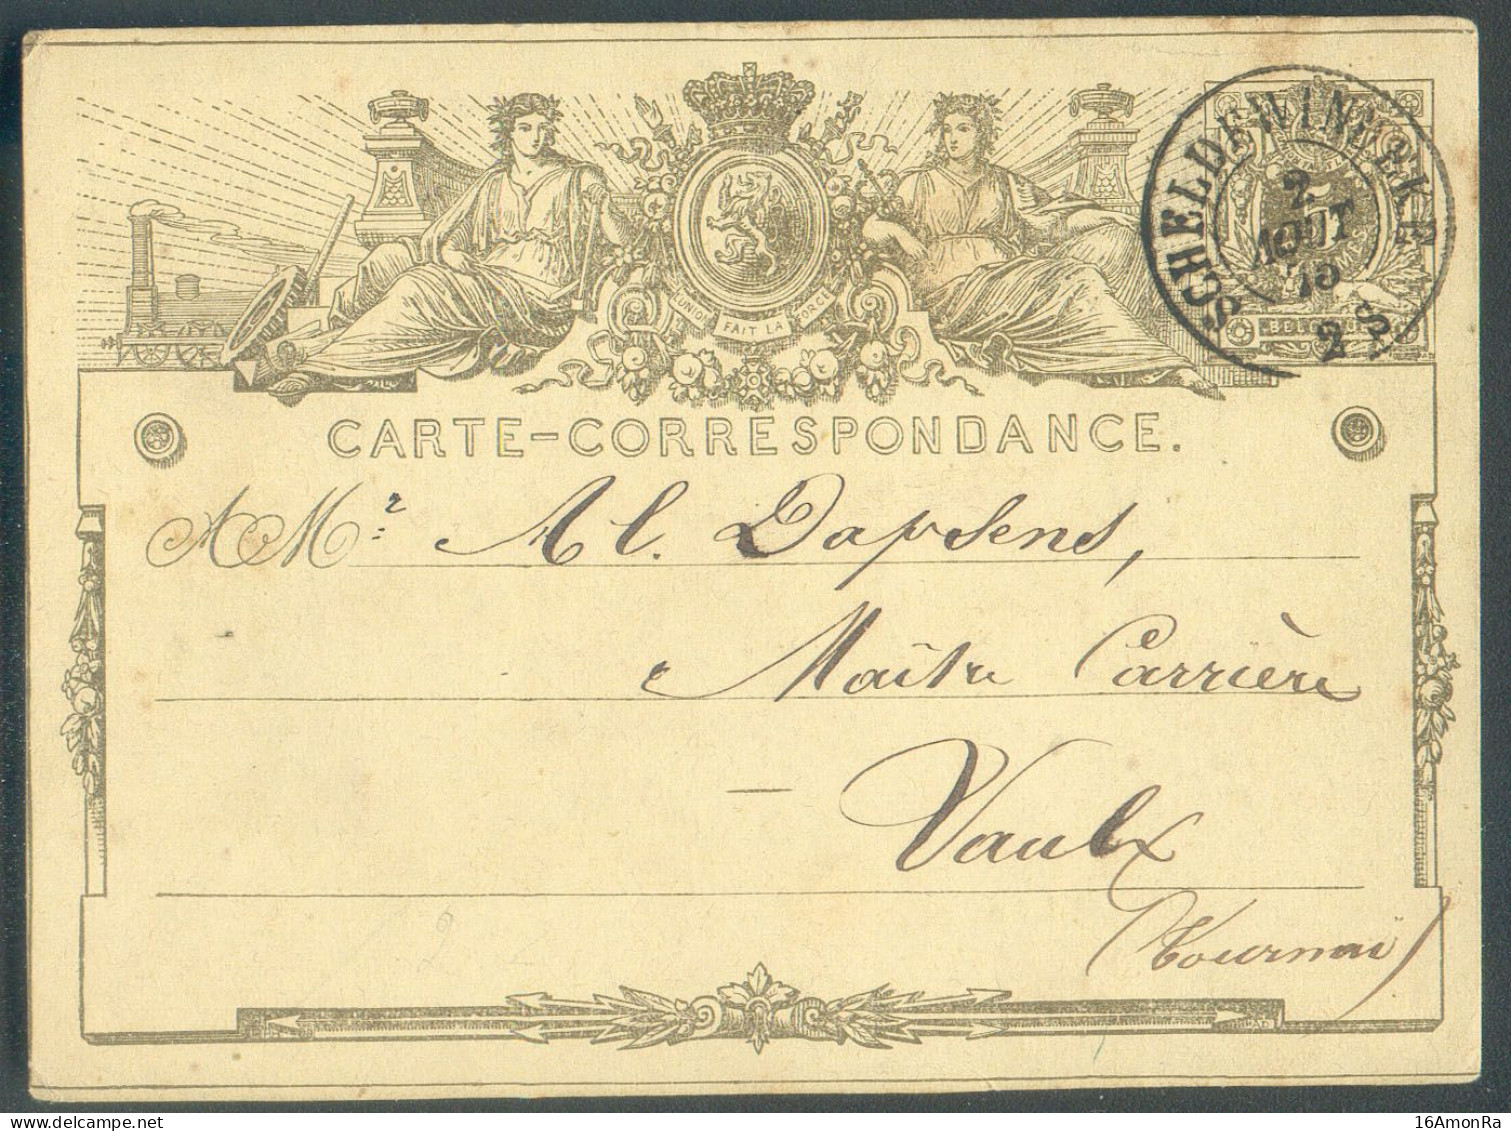 L'UNION FAIT LA FORCE
SCHELDEWINDEKE
2
AOUT
75
2 S
BELGIQUE
CARTE-CORRESPONDANCE.
A Mr Al. Dapsens,
Maître Carrière
Vaulx
(Tournai)
16AmonRa